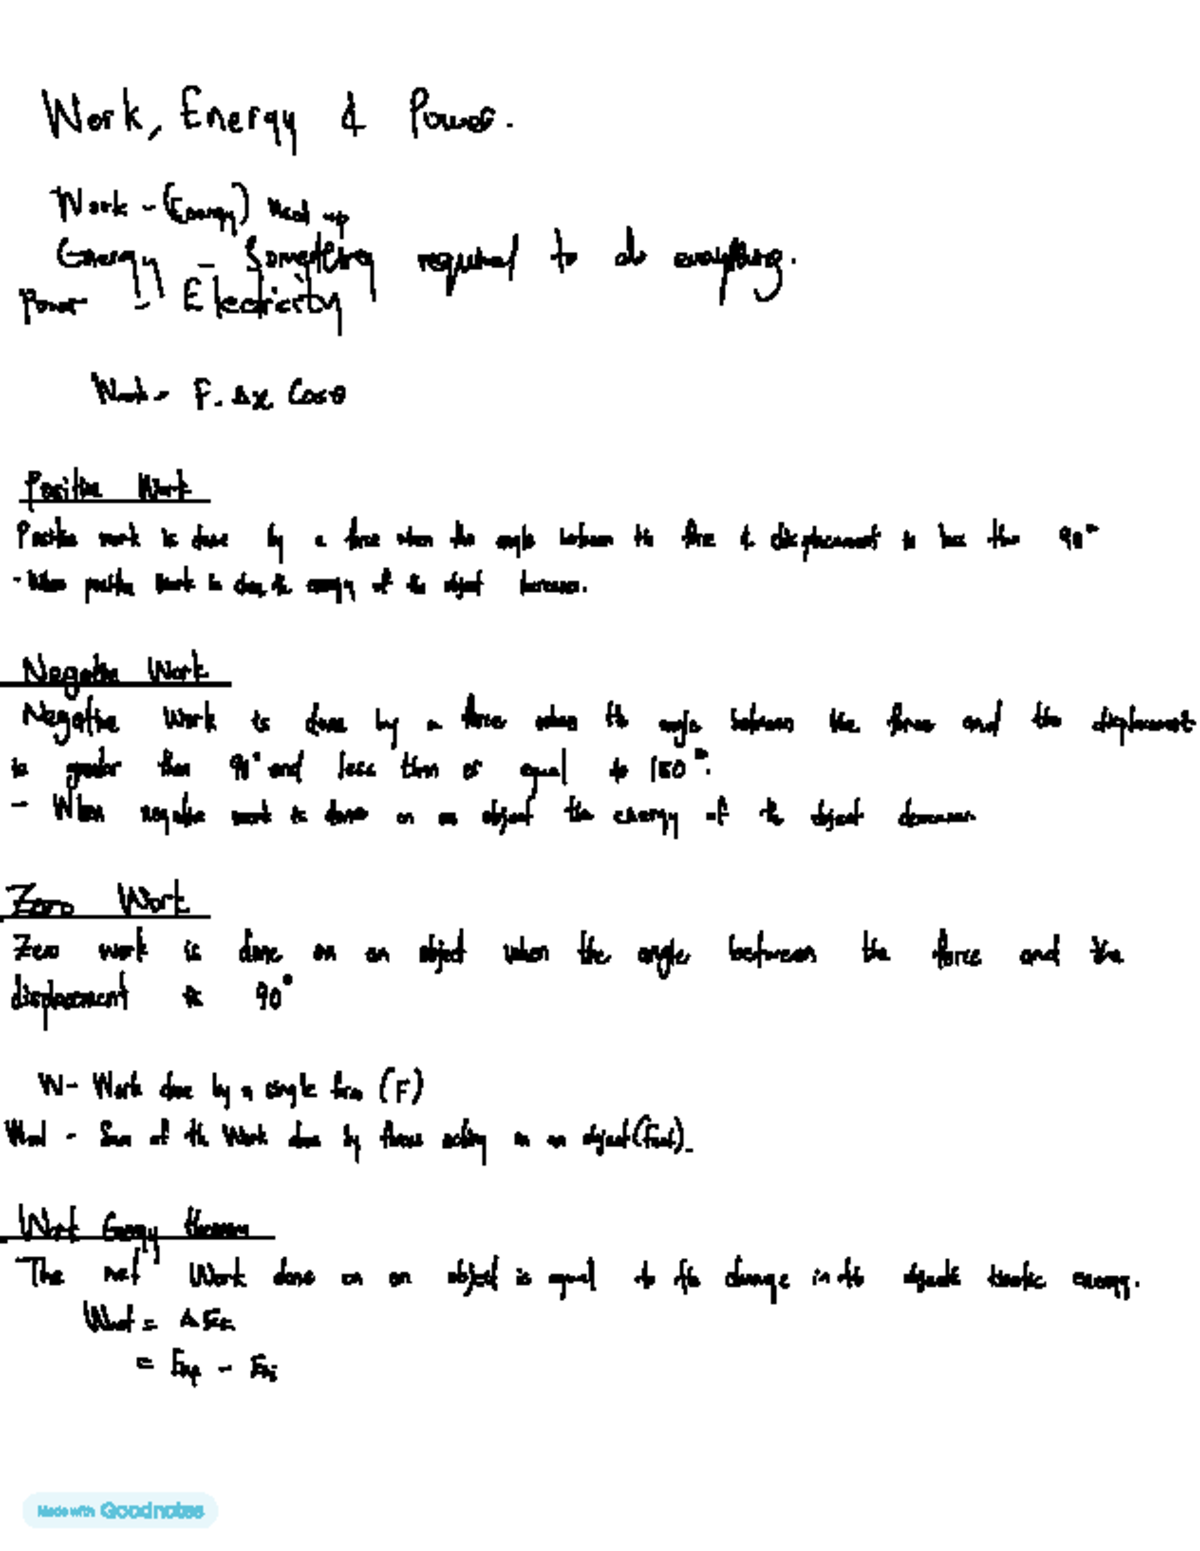 Work, Energy & Power.
Work - (Energy) used up
Energy - Something required to do everything.
Power - Electricity
Work = F. Δx Cosθ
Positive Work
Positive work is done by a force when the angle between the force & displacement is less than 90°
- When positive work is done the energy of the object increases.
Negative Work
Negative Work is done by a force when the angle between the force and the displacement
is greater than 90° and less than or equal to 180°.
- When negative work is done on an object the energy of the object decreases
Zero Work
Zero work is done on an object when the angle between the force and the
displacement is 90°
W- Work done by a single force (F)
Wnet - Sum of the Work done by forces acting on an object (Fnet).
Work Energy theorem
The net Work done on an object is equal to the change in the objects kinetic energy.
Wnet = ΔEk
= Ekf - Eki
Made with Goodnotes